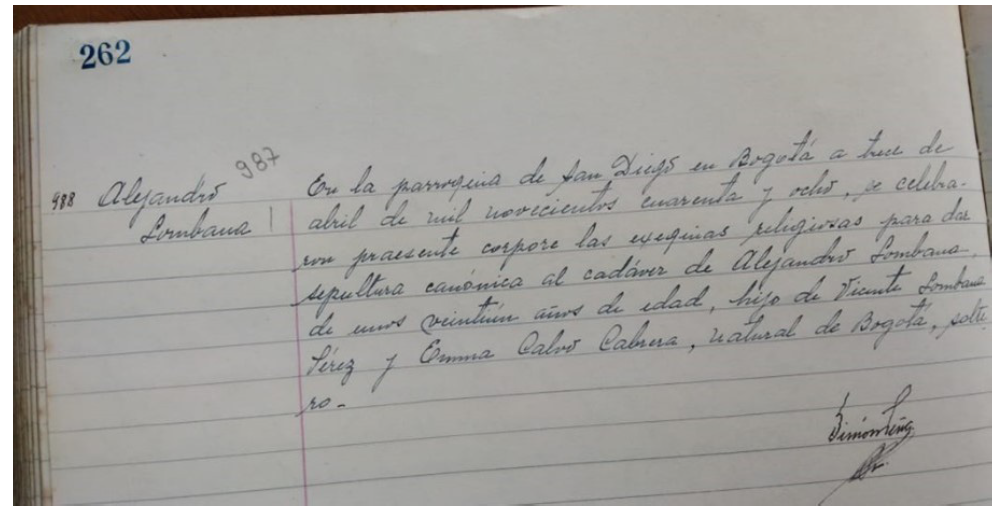 262
987
988 Alejandro
Lombana
En la parroquia de San Diego en Bogotá a trece de
abril de mil novecientos cuarenta y ocho, se celebra-
ron praesente corpore las exequias religiosas para dar
sepultura canónica al cadáver de Alejandro Lombana,
de unos veintiún años de edad, hijo de Vicente Lombana
Pérez y Emma Calvo Cabrera, natural de Bogotá, solte
ro-
Simón